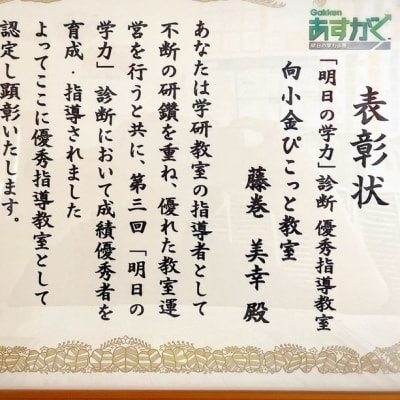 Gakken
あすがく
明日の学力診断
表彰状
「明日の学力」診断 優秀指導教室
向小金ぴこっと教室
藤巻 美幸 殿
あなたは学研教室の指導者として
不断の研鑽を重ね、優れた教室運
営を行うと共に、第三回「明日の
学力」診断において成績優秀者を
育成・指導されました
よってここに優秀指導教室として
認定し顕彰いたします。